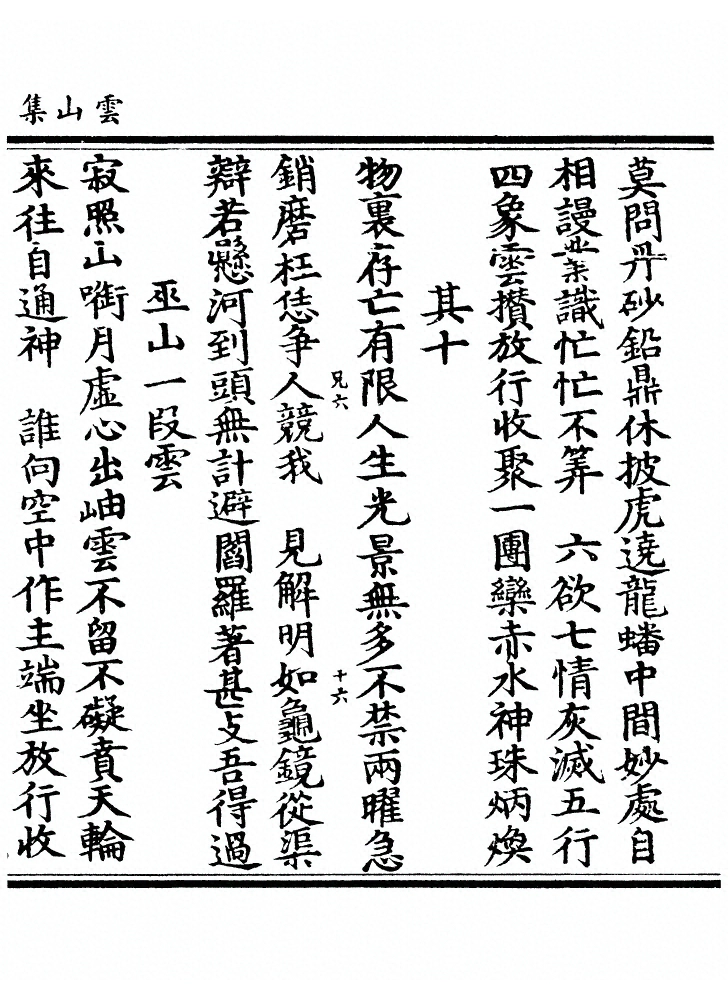 雲山集
莫問丹砂鉛鼎休披虎遶龍蟠中間妙處自
相謾業識忙忙不筭　六欲七情灰滅五行
四象雲攢放行收聚一團欒赤水神珠炳煥
其十
物裏存亡有限人生光景無多不禁兩曜急
兄六
十六
銷磨枉恁争人競我　見解明如龜鏡從渠
辯若懸河到頭無計避閻羅著甚支吾得過
巫山一段雲
寂照山啣月虛心出岫雲不留不礙賁天輪
來往自通神　誰向空中作主端坐放行收